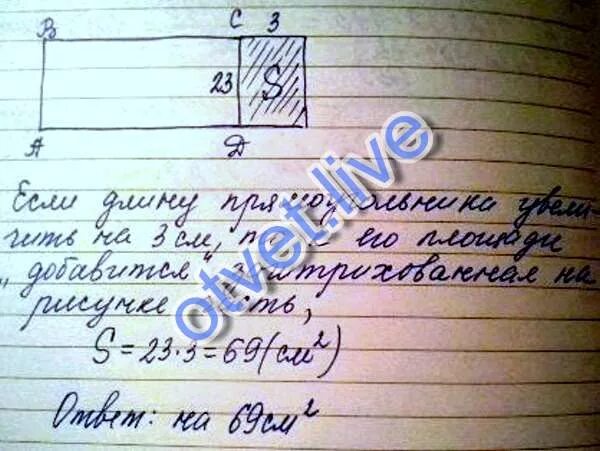 B C 3
23 S
A D
Если длину прямоугольника увели-
чить на 3 см, то к его площади
„добавится" заштрихованная на
рисунке часть,
S = 23·3 = 69 (см²)
Ответ: на 69 см²
otvet.live